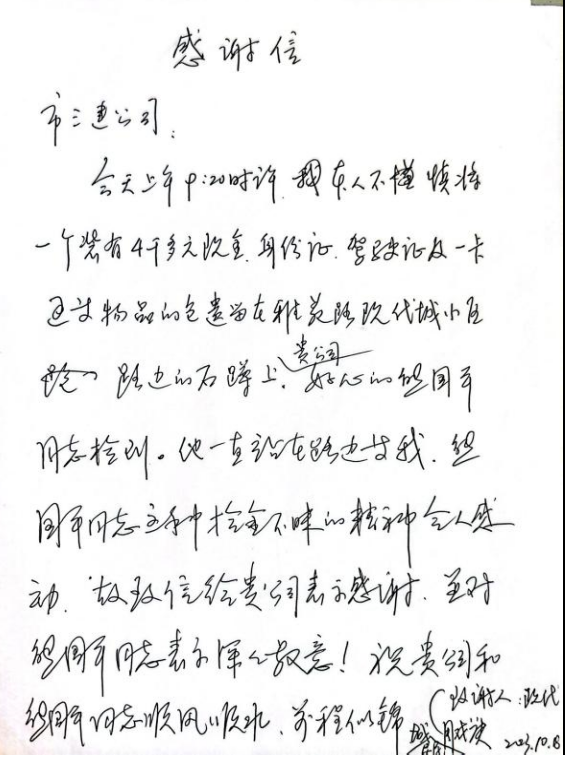 感谢信
市三建公司:
今天上午9:20时许,我本人不慎将
一个装有4千多元现金、身份证、驾驶证及一卡
通等物品的包遗留在雅美路现代城小区
路边的石蹲上,贵公司好心的熊国平
同志捡到。他一直站在路边等我,熊
国平同志这种拾金不昧的精神令人感
动,故致信给贵公司表示感谢,并对
熊国平同志表示深深敬意!祝贵公司和
熊国平同志顺风顺水,前程似锦
致谢人:现代
城
10.8